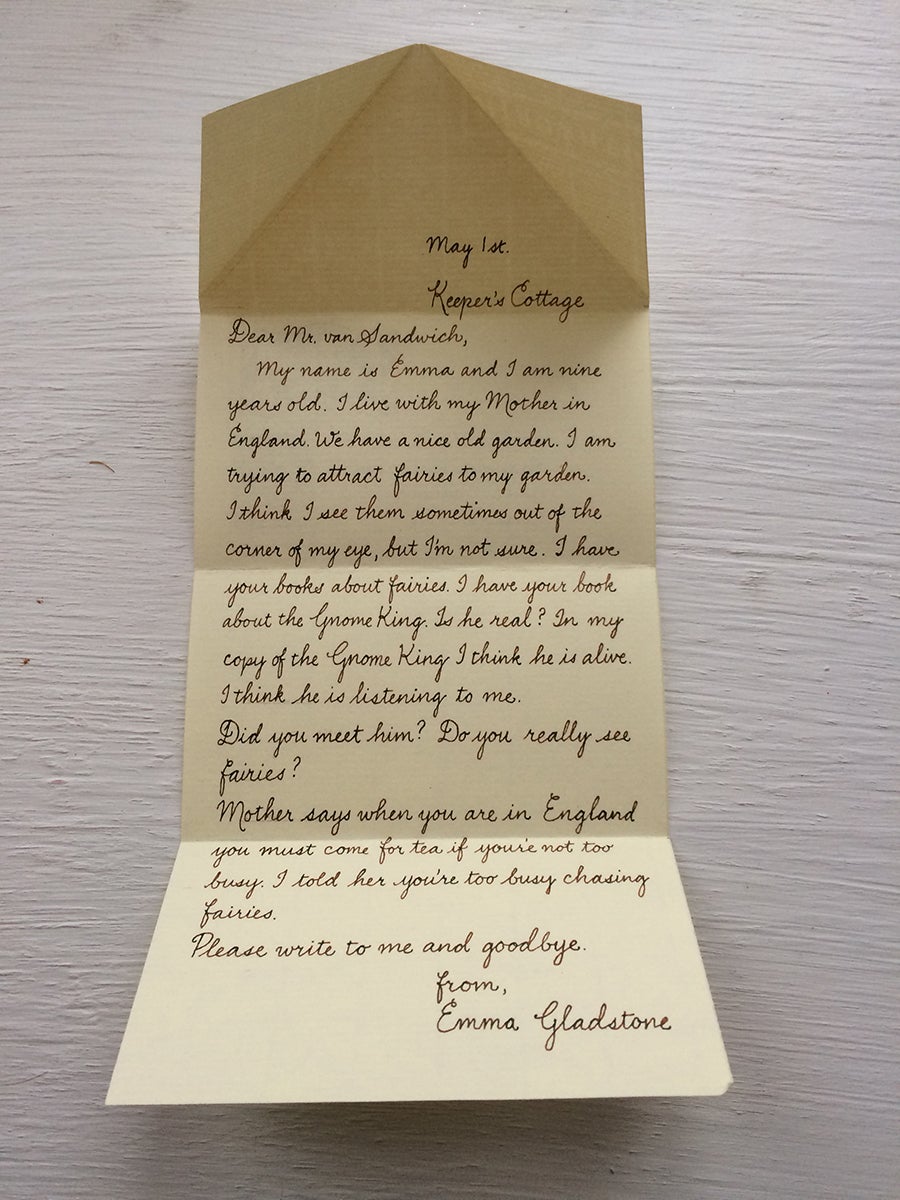 May 1st.
Keeper's Cottage
Dear Mr. van Sandwich,
My name is Emma and I am nine
years old. I live with my Mother in
England. We have a nice old garden. I am
trying to attract fairies to my garden.
I think I see them sometimes out of the
corner of my eye, but I'm not sure. I have
your books about fairies. I have your book
about the Gnome King. Is he real? In my
copy of the Gnome King I think he is alive.
I think he is listening to me.
Did you meet him? Do you really see
fairies?
Mother says when you are in England
you must come for tea if you're not too
busy. I told her you're too busy chasing
fairies.
Please write to me and goodbye.
from,
Emma Gladstone